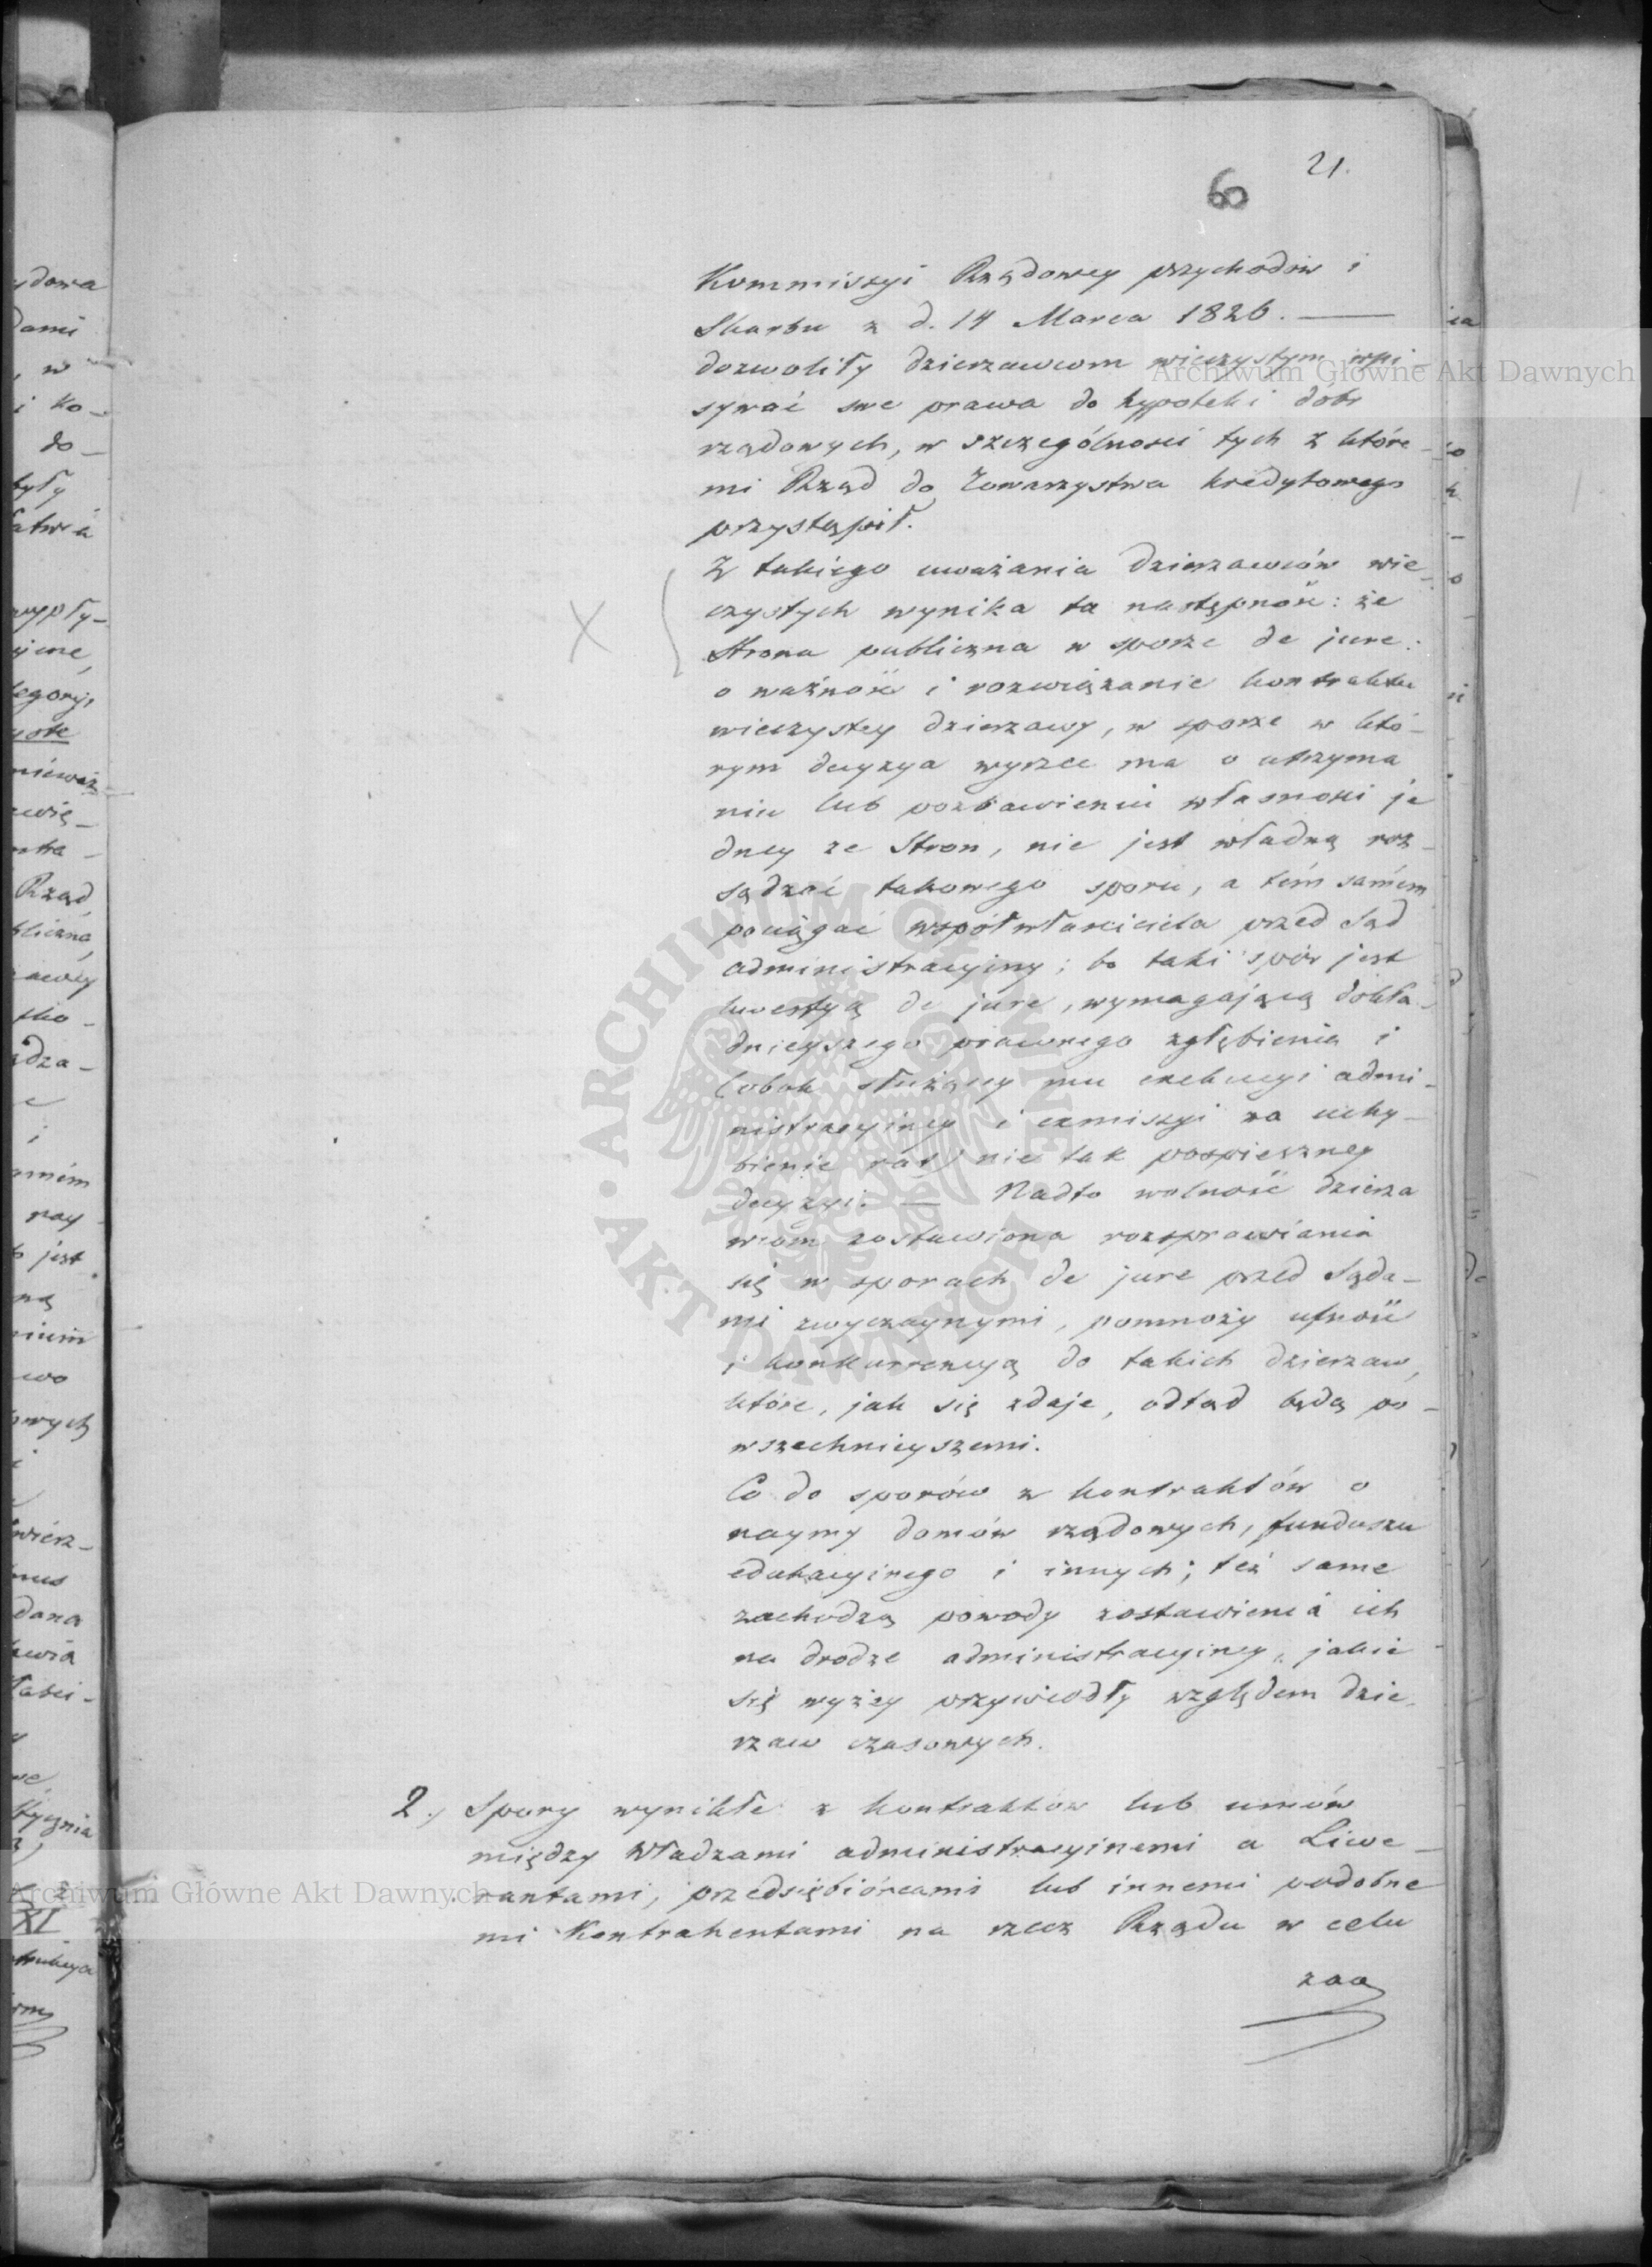 21.
60
Kommissyi Rządowey przychodów i
Skarbu z d. 14 Marca 1826. —
dozwoliły dzierzawcom wieczystym wpi-
sywać swe prawa do hypoteki dóbr
rządowych, w szczególności tych z które-
mi Rząd do Towarzystwa kredytowego
przystąpił.
Z takiego uważania dzierzawców wie-
czystych wynika ta następność: że
X
Strona publiczna w sporze de jure
o ważność i rozwiązanie kontraktu
wieczystey dzierzawy, w sporze w któ-
rym decyzya wyrzec ma o utrzyma
niu lub pozbawieniu własności je
dney ze Stron, nie jest władną roz-
sądzać takowego sporu, a tém samém
pociągać współwłaściciela przed Sąd
administracyiny; bo taki spór jest
kwestyą de jure, wymagającą dokła-
dnieyszego prawnego zgłębienia i
(obok służącey mu exekucyi admi-
nistracyiney i exmissyi za uchy-
bienie rat) nie tak pospieszney
decyzyi. — Nadto wolność dzierza
wcom zostawiona rozprawiania
się w sporach de jure przed Sąda-
mi zwyczaynymi, pomnoży ufność
i konkurrencyą do takich dzierzaw,
które, jak się zdaje, odtąd będą po-
wszechnieyszemi.
Co do sporów z kontraktów o
naymy domów rządowych, funduszu
edukacyinego i innych; też same
zachodzą powody zostawienia ich
na drodze administracyiney, jakie
się wyżey przywiodły względem dzie-
rzaw czasowych.
2.) Spory wynikłe z kontraktów lub umów
między Władzami administracyinemi a Liwe-
rantami, przedsiębiórcami lub innemi podobne
mi Kontrahentami na rzecz Rządu w celu
zao
Archiwum Główne Akt Dawnych
Archiwum Główne Akt Dawnych
ARCHIWUM GŁÓWNE · AKT DAWNYCH ·